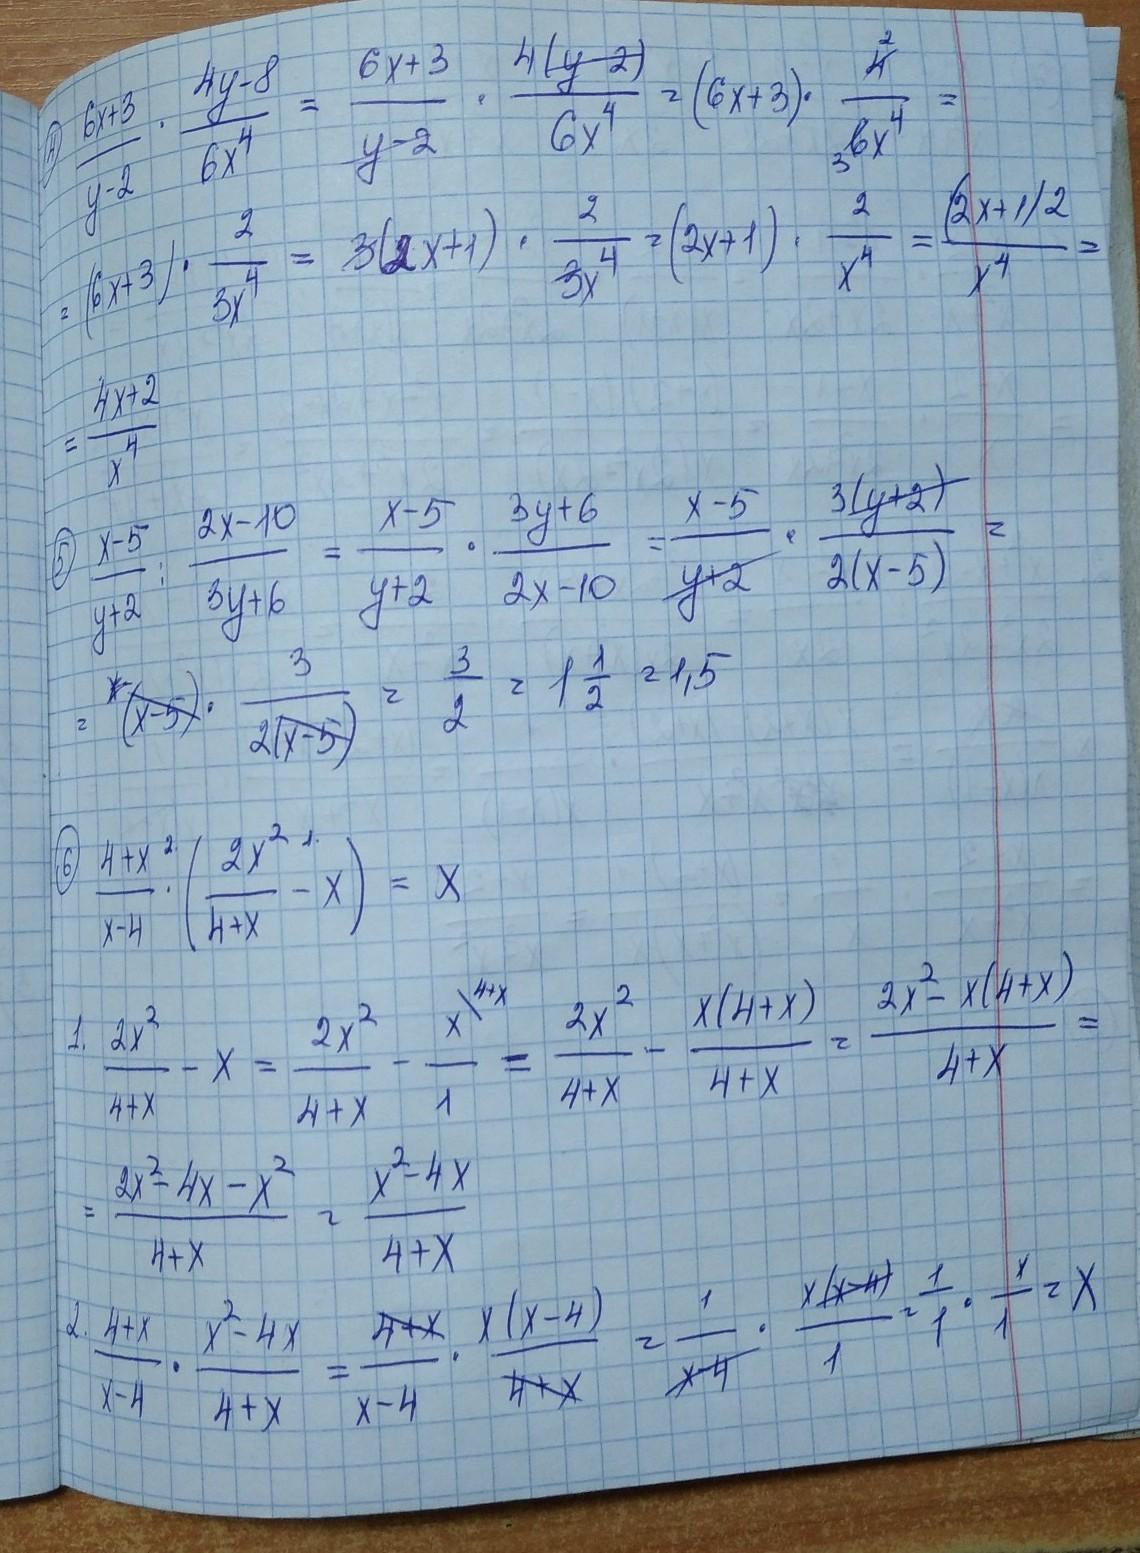 ④ (6x+3)/(y-2) · (4y-8)/(6x⁴) = (6x+3)/(y-2) · 4(y-2)/(6x⁴) = (6x+3) · 4²/(₃6x⁴) =
= (6x+3) · 2/(3x⁴) = 3(2x+1) · 2/(3x⁴) = (2x+1) · 2/x⁴ = (2x+1)2/x⁴ =
= (4x+2)/x⁴
⑤ (x-5)/(y+2) : (2x-10)/(3y+6) = (x-5)/(y+2) · (3y+6)/(2x-10) = (x-5)/(y+2) · 3(y+2)/(2(x-5)) =
= (x-5) · 3/(2(x-5)) = 3/2 = 1 1/2 = 1,5
⑥ (4+x)/(x-4) ·² (2x²/(4+x) -¹· x) = x
1. 2x²/(4+x) - x = 2x²/(4+x) - x\⁴⁺ˣ/1 = 2x²/(4+x) - x(4+x)/(4+x) = (2x² - x(4+x))/(4+x) =
= (2x²-4x-x²)/(4+x) = (x²-4x)/(4+x)
2. (4+x)/(x-4) · (x²-4x)/(4+x) = (4+x)/(x-4) · x(x-4)/(4+x) = 1/(x-4) · x(x-4)/1 = 1/1 · x/1 = x